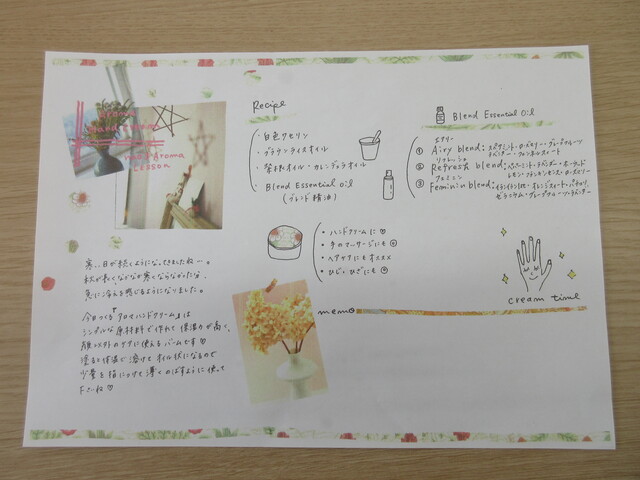 aroma
hand cream
nail & aroma
lesson
寒い日が続くようになってきましたねー。
秋が長く、なかなか寒くならなかった分
急に冷えを感じるようになりました。
今日つくる『アロマハンドクリーム』は
シンプルな原材料で作れて保湿力が高く、
顔以外のケアに使えるバームです♡
塗ると体温で溶けてオイル状になるので
少量を指につけて薄くのばすように使って
下さいね♡
Recipe
・白色ワセリン
・プラチナライスオイル
・オイル・カレンデュラオイル
・Blend Essential Oil
(ブレンド精油)
・ハンドクリームに♡
・手のマッサージにも☺
・ヘアケアにもオススメ
・ひじ・ひざにも☺
Blend Essential Oil
エアリー
① Airy blend: スペアミント・ローズマリー・グレープフルーツ
ラベンダー・フェンネルスイート
リフレッシュ
② Refresh blend: ペパーミント・ラベンダー・ホーウッド
レモン・フランキンセンス・ローズマリー
フェミニン
③ Feminin blend: イランイラン・オレンジスイート・パチュリ
ゼラニウム・グレープフルーツ・ラベンダー
cream time
memo